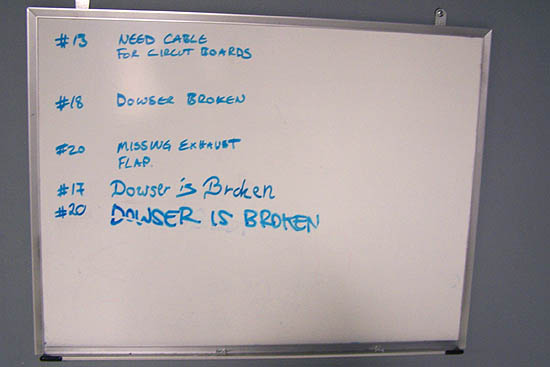 #13 NEED CABLE
FOR CIRCUT BOARDS
#18 DOWSER BROKEN
#20 MISSING EXHAUST
FLAP.
#17 Dowser is Broken
#20 DOWSER IS BROKEN